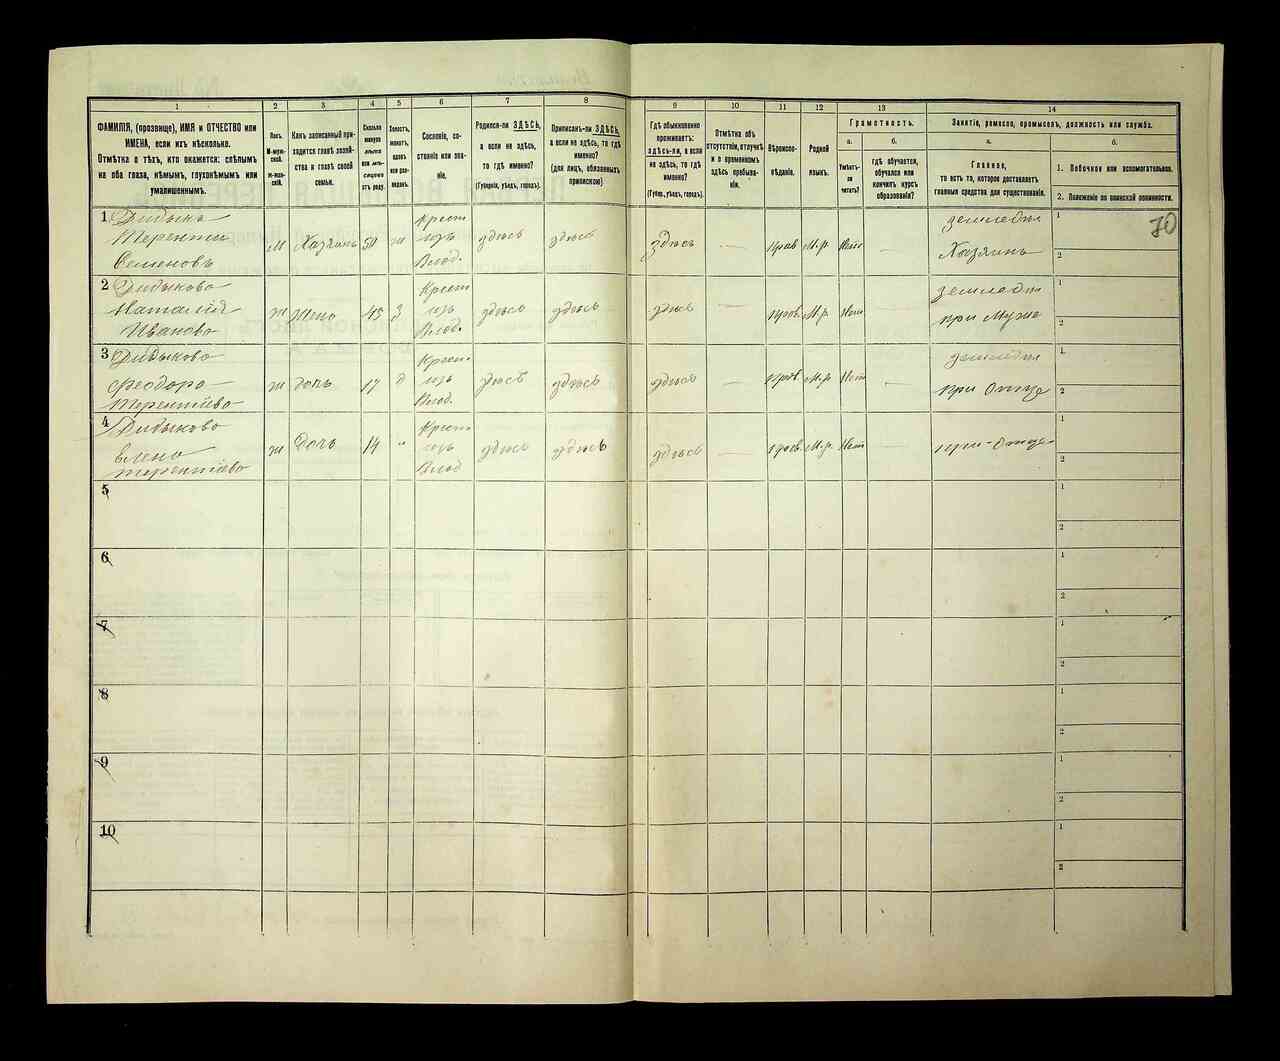 1
2
3
4
5
6
7
8
9
10
11
12
13
14
ФАМИЛІЯ, (прозвище), ИМЯ и ОТЧЕСТВО или
ИМЕНА, если ихъ нѣсколько.
Отмѣтка о тѣхъ, кто окажется: слѣпымъ
на оба глаза, нѣмымъ, глухонѣмымъ или
умалишеннымъ.
Полъ.
М-муж-
ской.
ж-жен-
скій.
Какъ записанный при-
ходится главѣ хозяй-
ства и главѣ своей
семьи.
Сколько
минуло
лѣтъ
или мѣ-
сяцевъ
отъ роду.
Холостъ,
женатъ,
вдовъ
или раз-
веденъ.
Сословіе, со-
стояніе или зва-
ніе.
Родился-ли ЗДѢСЬ,
а если не здѣсь,
то гдѣ именно?
(Губернія, уѣздъ, городъ).
Приписанъ-ли ЗДѢСЬ,
а если не здѣсь, то гдѣ
именно?
(для лицъ, обязанныхъ
припискою)
Гдѣ обыкновенно
проживаетъ:
здѣсь-ли, а если
не здѣсь, то гдѣ
именно?
(Губер., уѣздъ, городъ).
Отмѣтка объ
отсутствіи, отлучкѣ
и о временномъ
здѣсь пребыва-
ніи.
Вѣроиспо-
вѣданіе.
Родной
языкъ.
Грамотность.
а.
б.
Умѣетъ-
ли
читать?
гдѣ обучается,
обучался или
кончилъ курсъ
образованія?
Занятіе, ремесло, промыселъ, должность или служба.
а.
б.
Главное,
то есть то, которое доставляетъ
главныя средства для существованія.
1. Побочное или вспомогательное.
2. Положеніе по воинской повинности.
70
1 Дидыкъ
Терентий
Семеновъ
М Хазяинъ 50 ж
Крест
изъ
Влад.
здѣсь здѣсь здѣсь — Прав М.р. Нет —
земледел
Хазяинъ
1
2
2 Дидыкова
Наталия
Иванова
ж жена 45 З
Крест
изъ
Влад.
здѣсь здѣсь здѣсь — Прав. М.р. Нет —
земледел
при Муже
1
2
3 Дидыкова
Феодора
Терентіева
ж дочь 17 д
Крест
изъ
Влад.
здѣсь здѣсь здѣсь — Прав. М.р. Нет —
земледел
при Отце
1
2
4 Дидыкова
Елена
Терентіева
ж Дочь 14 "
Крест
изъ
Влад
здѣсь здѣсь здѣсь — Прав. М.р. Нет —
при-Отце
1
2
5
1
2
6
1
2
7
1
2
8
1
2
9
1
2
10
1
2